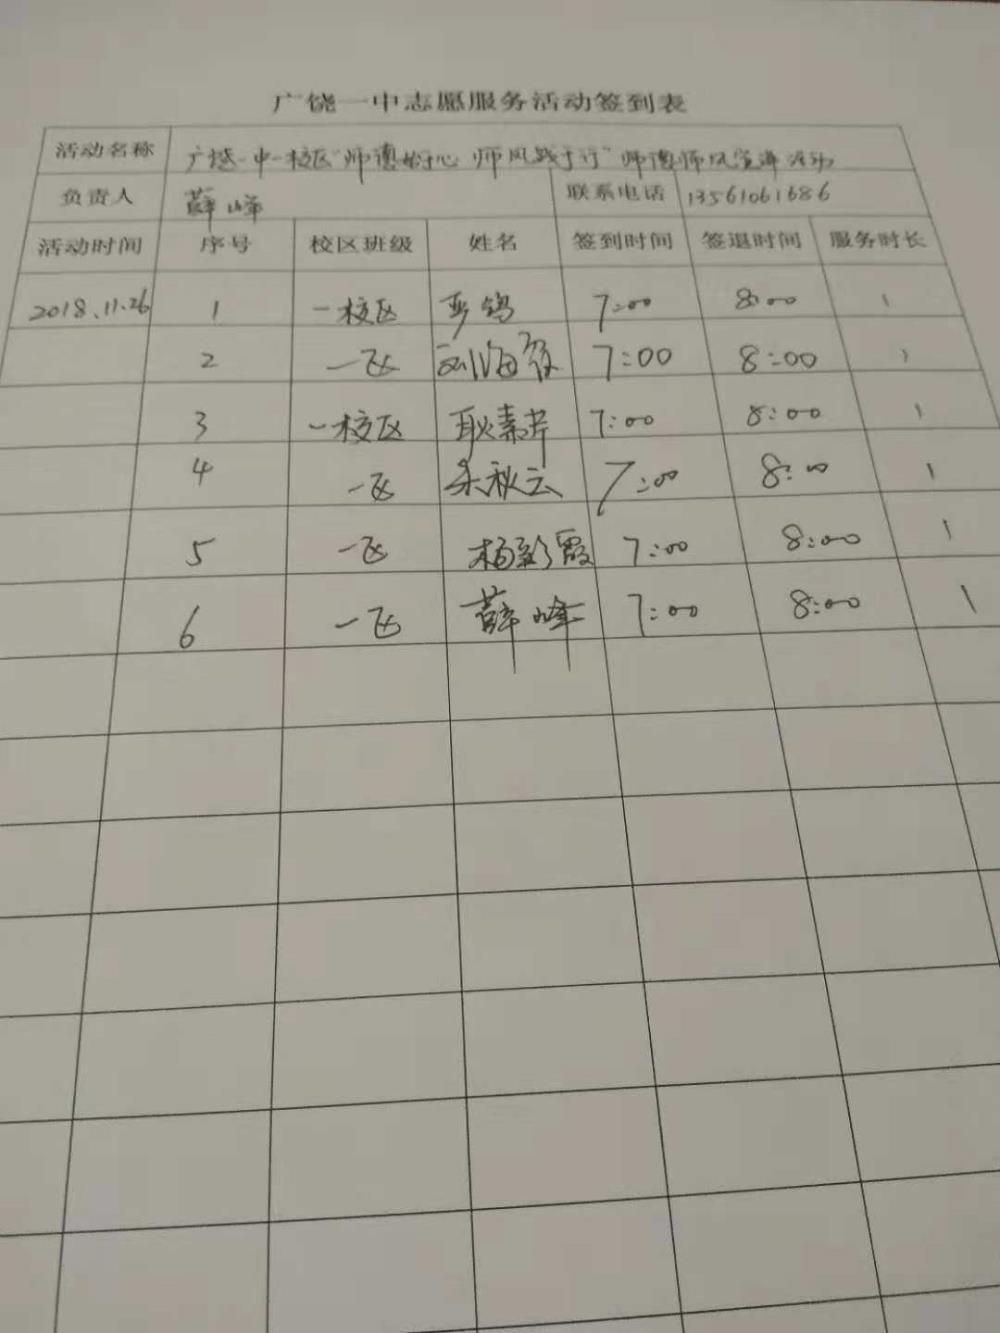 广饶一中志愿服务活动签到表
活动名称 广饶一中一校区"师德始于心 师风践于行"师德师风宣讲活动
负责人 薛峰 联系电话 13561061686
活动时间 序号 校区班级 姓名 签到时间 签退时间 服务时长
2018.11.26 1 一校区 7:00 8:00 1
2 一区 刘海霞 7:00 8:00 1
3 一校区 耿素芹 7:00 8:00 1
4 一区 秋云 7:00 8:00 1
5 一区 杨彩霞 7:00 8:00 1
6 一区 薛峰 7:00 8:00 1